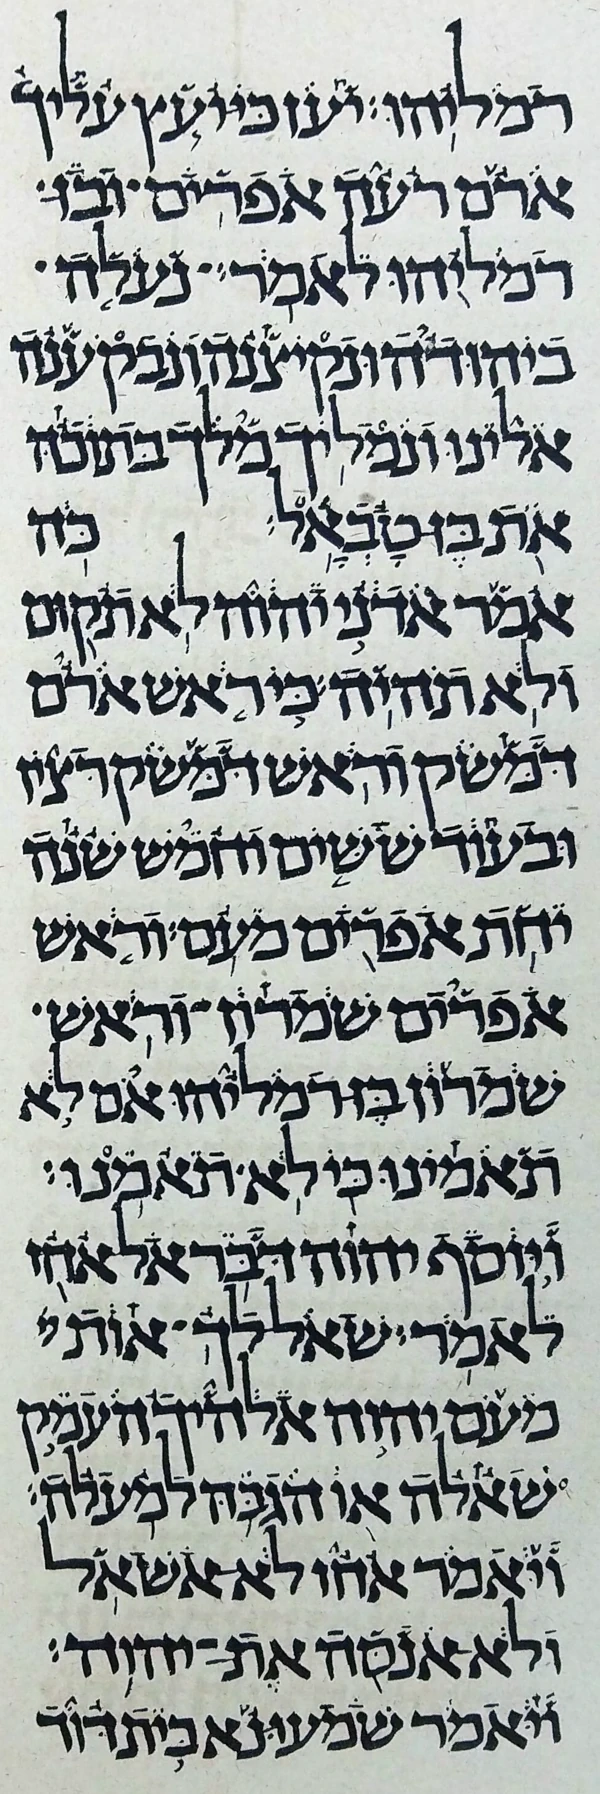 רמליהו׃ יען כי יועץ עליך
ארם רעה אפרים ׳ ובן ׳
רמליהו לאמר׃ נעלה ׳
ביהודה ונקיצנה ונבקענה
אלינו ונמליך מלך בתוכה
את בן טבאל׃ כה
אמר אדני יהוה לא תקום
ולא תהיה׃ כי ראש ארם
דמשק וראש דמשק רצין
ובעוד ששים וחמש שנה
יחת אפרים מעם׃ וראש
אפרים שמרון ׳ וראש ׳
שמרון בן רמליהו אם לא
תאמינו כי לא תאמנו׃
ויוסף יהוה דבר אל אחז
לאמר׃ שאל לך ׳ אות
מעם יהוה אלהיך העמק
שאלה או הגבה למעלה׃
ויאמר אחז לא אשאל
ולא אנסה את־יהוה׃
ויאמר שמעו נא בית דוד